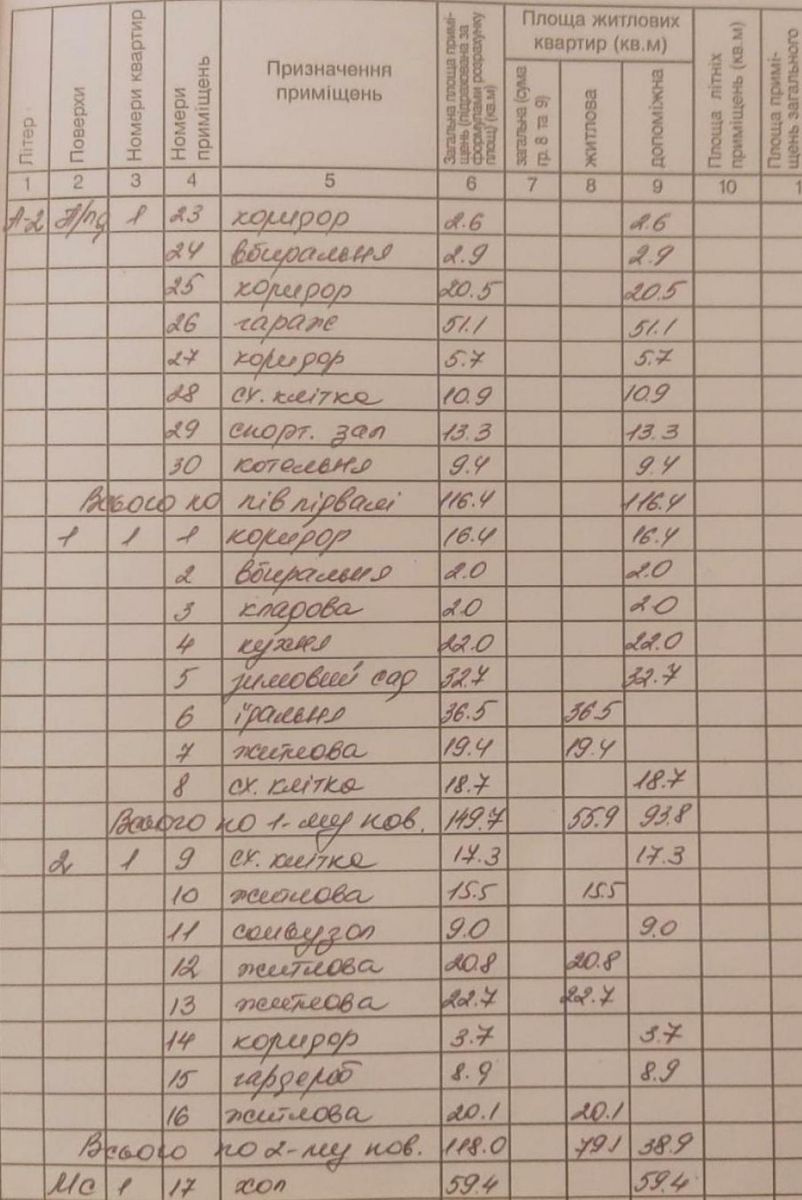 Літер Поверхи Номери квартир Номери приміщень Призначення приміщень Загальна площа приміщень (підрахована за формулами розрахунку площ) (кв.м) Площа житлових квартир (кв.м) загальна (сума гр. 8 та 9) житлова допоміжна Площа літніх приміщень (кв.м) Площа приміщень загального
1 2 3 4 5 6 7 8 9 10 1
А-2 П/пд 1 23 коридор 2.6 2.6
24 вбиральня 2.9 2.9
25 коридор 20.5 20.5
26 гараж 51.1 51.1
27 коридор 5.7 5.7
28 сх. клітка 10.9 10.9
29 спорт. зал 13.3 13.3
30 котельня 9.4 9.4
Всього по півпідвалі 116.4 116.4
1 1 1 коридор 16.4 16.4
2 вбиральня 2.0 2.0
3 кладова 2.0 2.0
4 кухня 22.0 22.0
5 зимовий сад 32.7 32.7
6 їдальня 36.5 36.5
7 житлова 19.4 19.4
8 сх. клітка 18.7 18.7
Всього по 1-му пов. 149.7 55.9 93.8
2 1 9 сх. клітка 17.3 17.3
10 житлова 15.5 15.5
11 санвузол 9.0 9.0
12 житлова 20.8 20.8
13 житлова 22.7 22.7
14 коридор 3.7 3.7
15 гардероб 8.9 8.9
16 житлова 20.1 20.1
Всього по 2-му пов. 118.0 79.1 38.9
Мс 1 17 хол 59.4 59.4